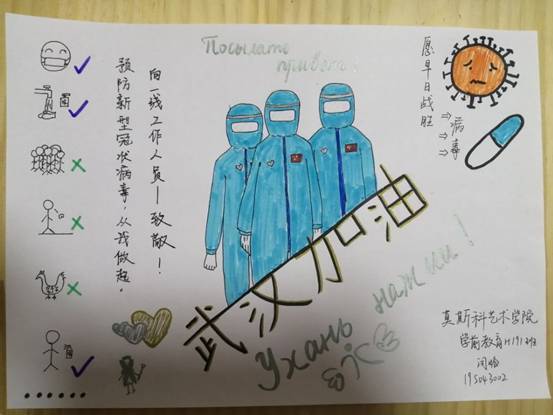 Посылать
привет!
愿早日战胜
病毒
向一线工作人员——致敬!
预防新型冠状病毒,从我做起。
武汉加油
Ухань
нажми!
莫斯科艺术学院
学前教育H191班
195043002